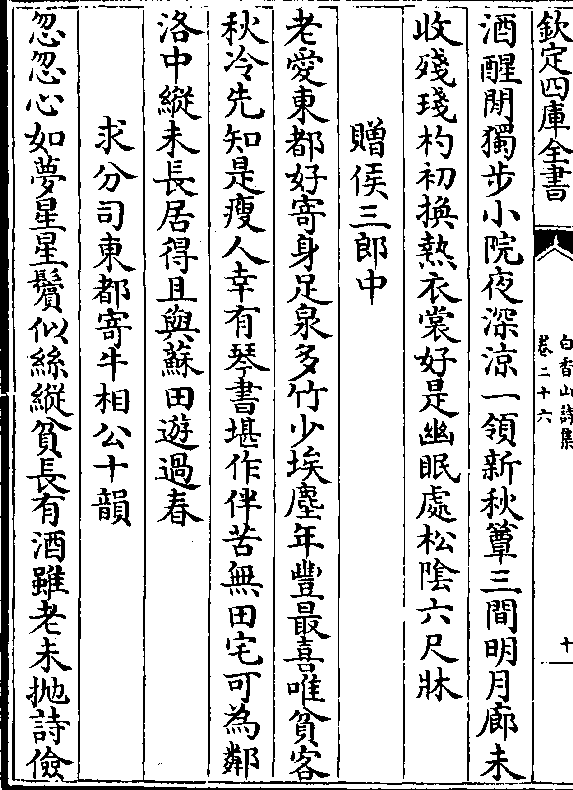 欽定四庫全書
白香山詩集
卷二十六
十
酒醒閒獨步小院夜深涼一領新秋簟三間明月廊未
收殘琖杓初換熱衣裳好是幽眠處松陰六尺牀
贈侯三郎中
老愛東都好寄身足泉多竹少埃塵年豐最喜唯貧客
秋冷先知是瘦人幸有琴書堪作伴苦無田宅可為鄰
洛中縱未長居得且與蘇田遊過春
求分司東都寄牛相公十韻
忽忽心如夢星星鬢似絲縱貧長有酒雖老未抛詩儉